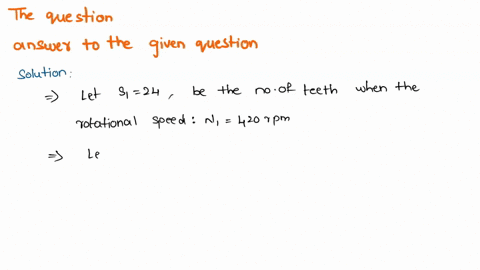 The question
answer to the given question
Solution:
⇒ Let S₁=24, be the no.of teeth when the
rotational speed: N₁ = 420 rpm
⇒ Le